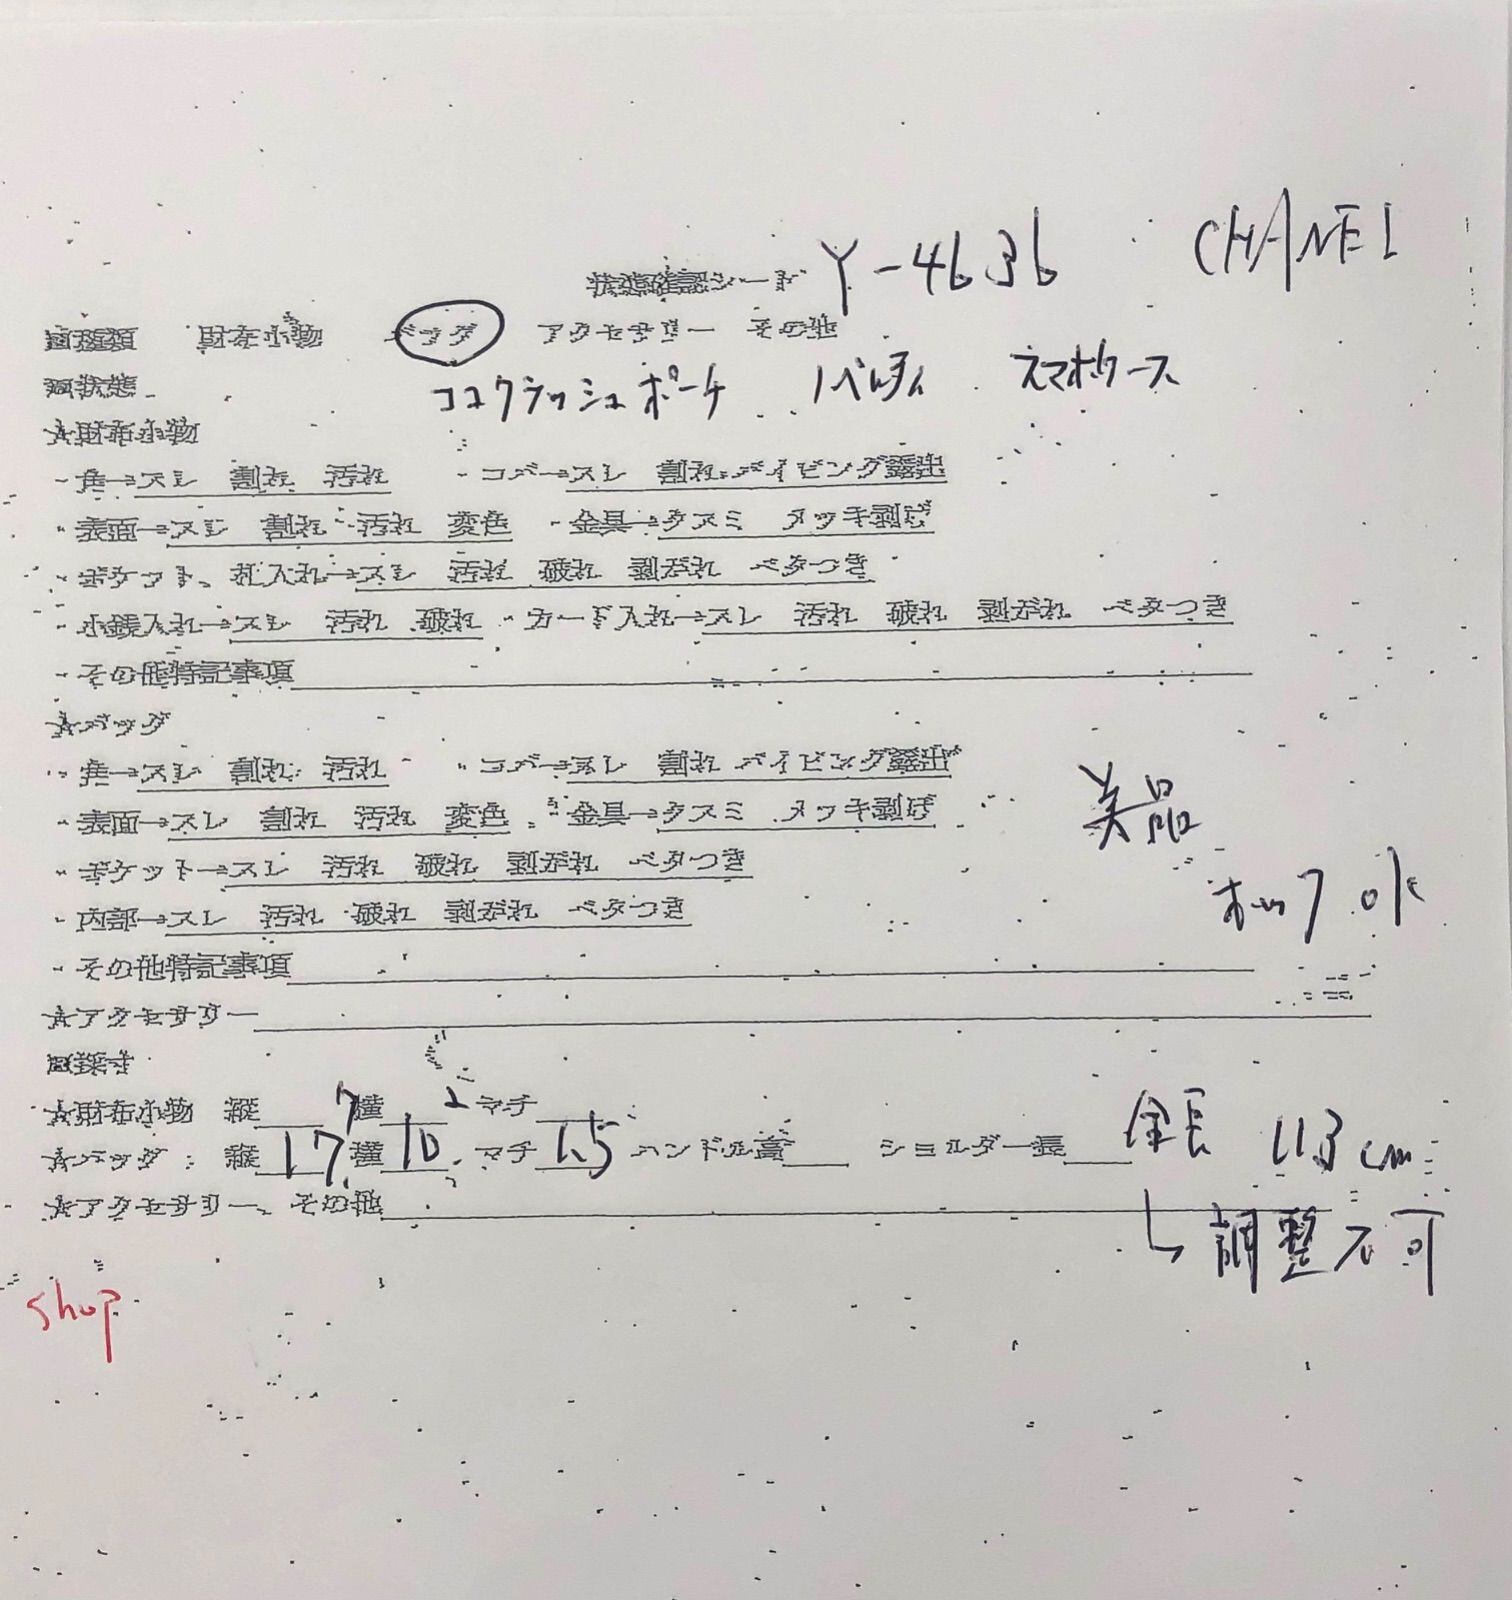 状態確認シート Y-4636 CHANEL
□種類 財布小物 バッグ アクセサリー その他
□状態 ココクラッシュポーチ ノベルティ スマホケース
☆財布小物
・角→スレ 割れ 汚れ ・コバ→スレ 割れ パイピング露出
・表面→スレ 割れ 汚れ 変色 ・金具→クスミ メッキ剥げ
・ポケット、札入れ→スレ 汚れ 破れ 剥がれ ベタつき
・小銭入れ→スレ 汚れ 破れ ・カード入れ→スレ 汚れ 破れ 剥がれ ベタつき
・その他特記事項
☆バッグ
・角→スレ 割れ 汚れ ・コバ→スレ 割れ パイピング露出
・表面→スレ 割れ 汚れ 変色 ・金具→クスミ メッキ剥げ 美品
・ポケット→スレ 汚れ 破れ 剥がれ ベタつき
・内部→スレ 汚れ 破れ 剥がれ ベタつき ホック ok
・その他特記事項
☆アクセサリー
□採寸
☆財布小物 縦 7 横 2 マチ
☆バッグ 縦 17 横 10 マチ 1.5 ハンドル高 ショルダー長 全長 113cm
☆アクセサリー、その他 ↳調整不可
shop